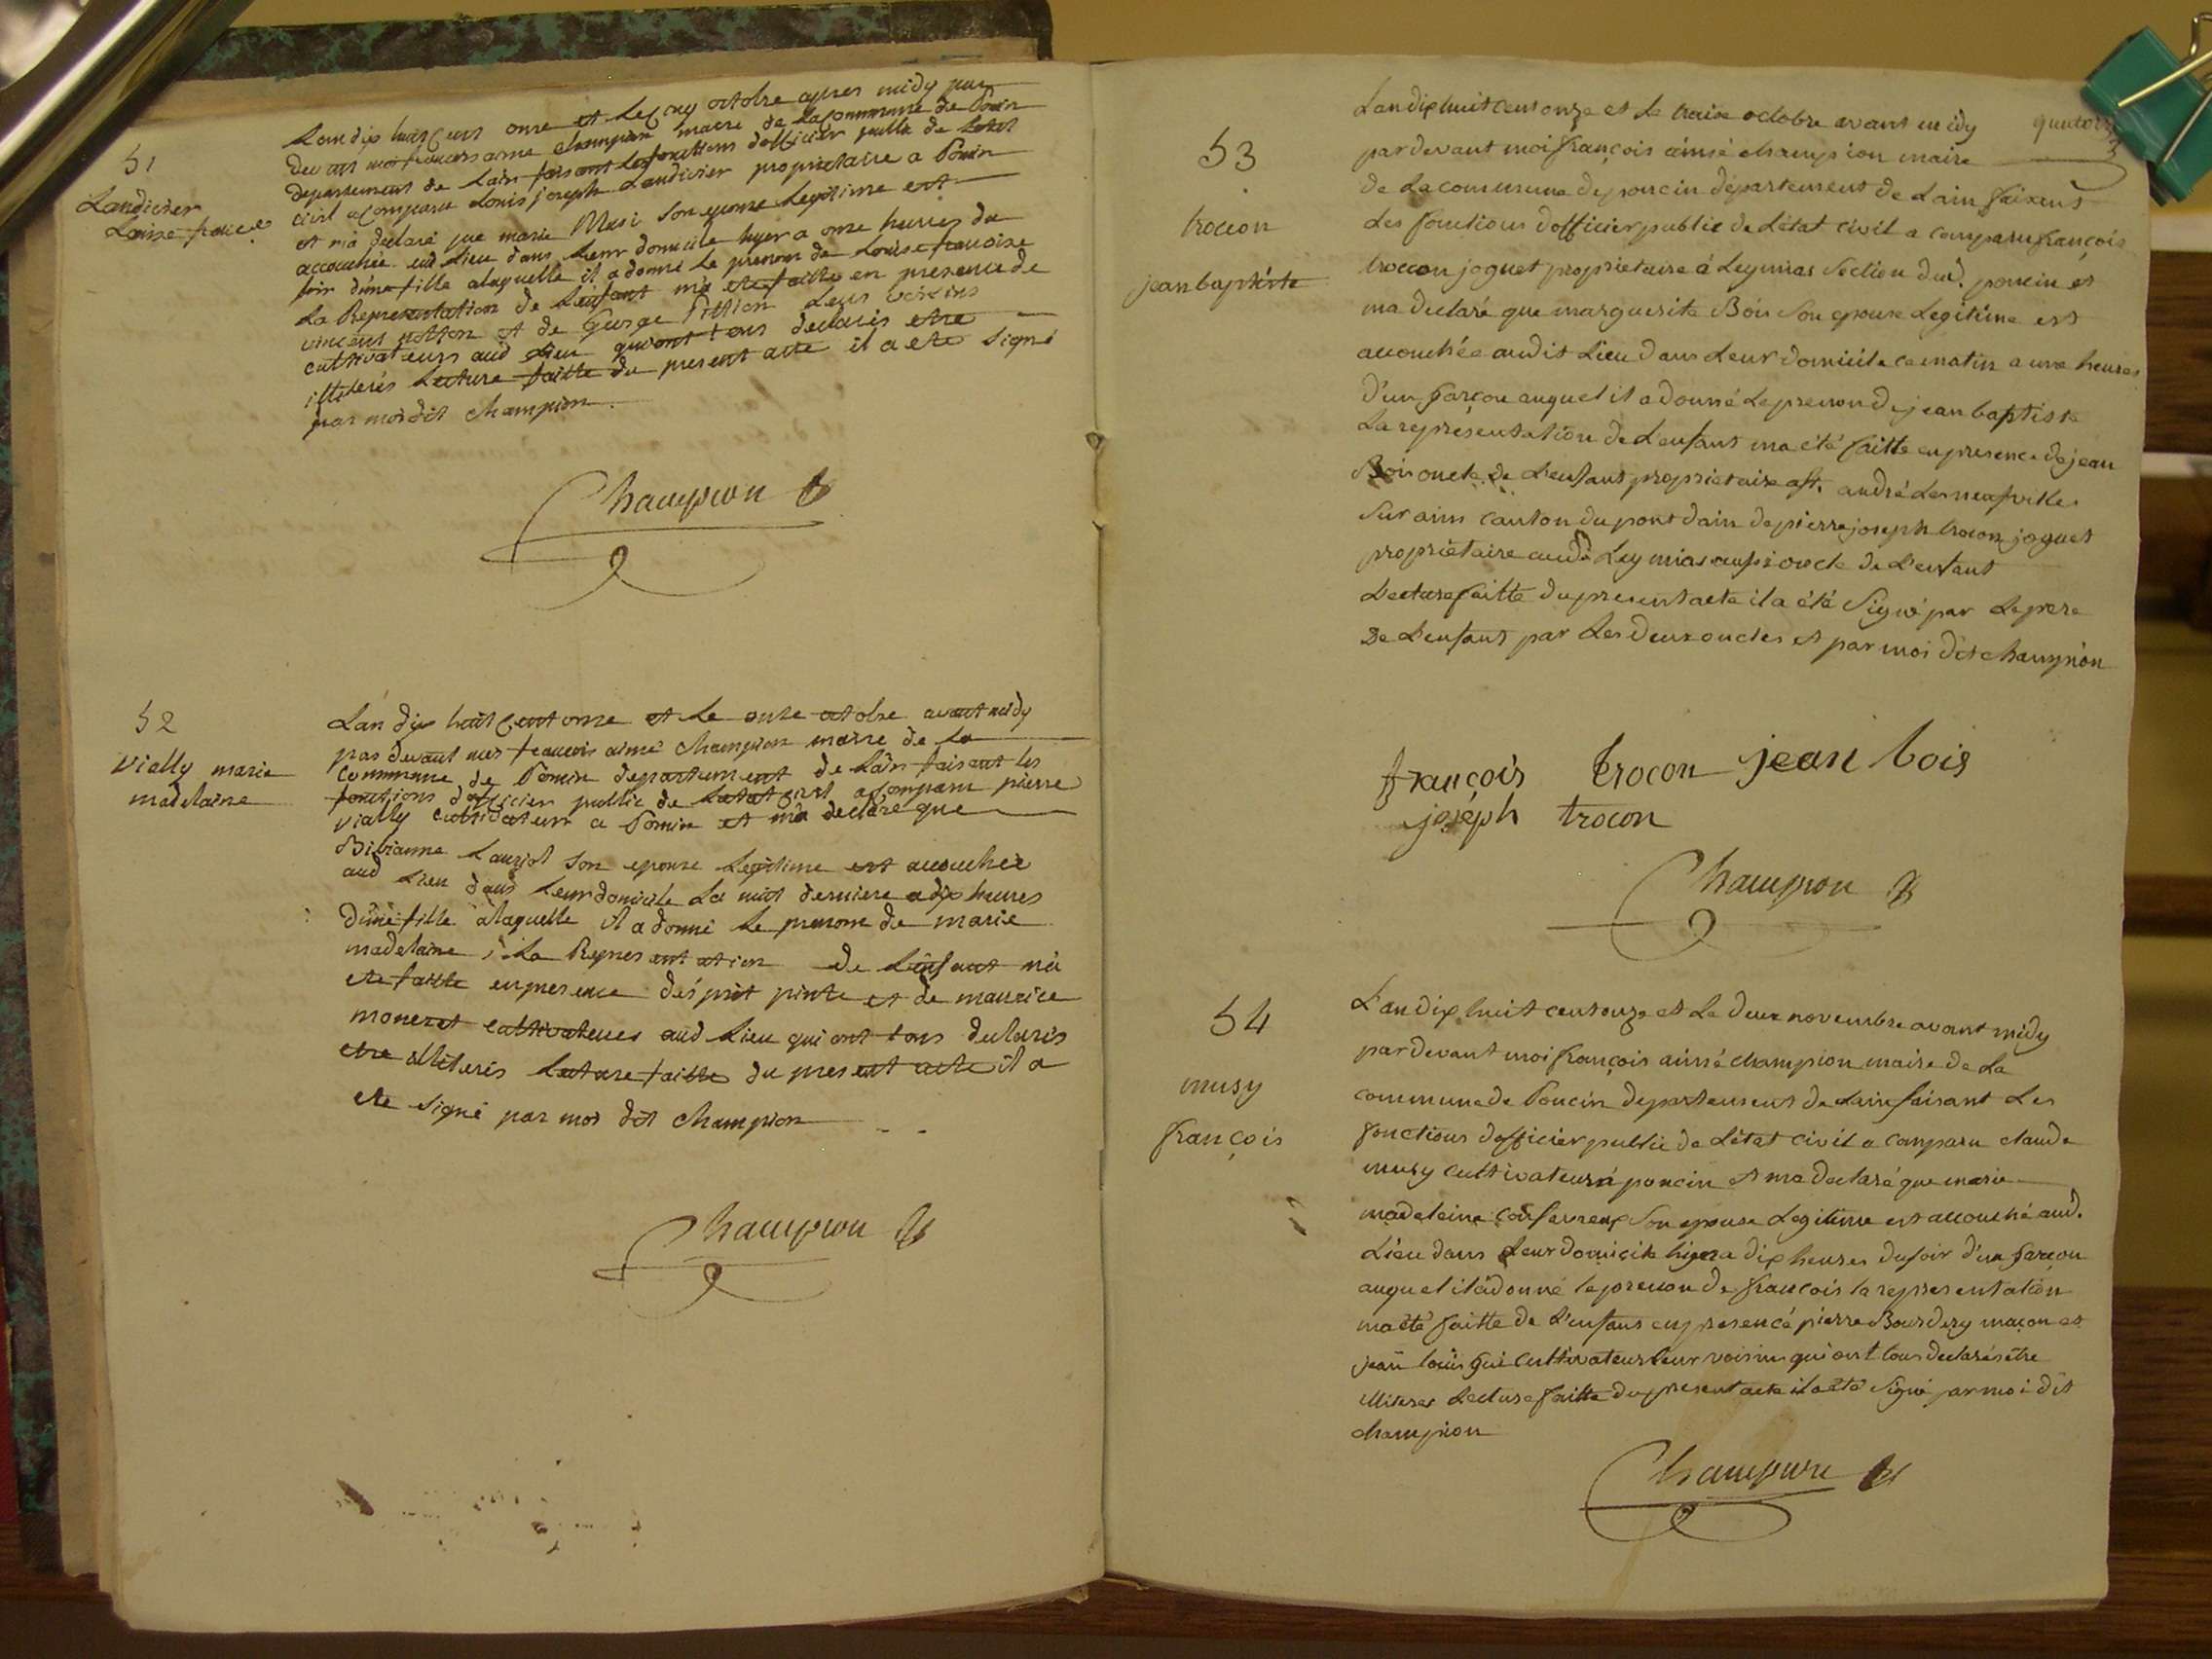 51
Landivier
Louise françse
Lan dix huit cent onze et le cinq octobre apres midy par
devant moi francois aimé champion maire de la commune de Poncin
departement de Lain faisant les fonctions dofficier public de letat
civil a comparu Louis joseph Landivier proprietaire a Poncin
et m'a declaré que marie Musi son epouse legitime est
accouchée aud lieu dans leur domicile hyer a onze heures du
soir d'une fille alaquelle il a donné le prenom de Louise francoise
La Representation de Lenfant m'a ete faitte en presence de
vincent et de George Leurs voisins
cultivateurs aud lieu qui ont tous declarés etre
illiterés Lecture faitte du present acte il a ete signé
par moi dit champion
Champion
52
vially marie
madelaine
Lan dix huit cent onze et le onze octobre avant midy
par devant moi francois aimé champion maire de la
commune de Poncin departement de Lain faisant les
fonctions dofficier public de Letat civil a comparu pierre
vially cultivateur a Poncin et m'a declaré que
Bibianne son epouse Legitime est accouchée
aud Lieu dans leur domicile La nuit derniere a dix heures
d'une fille alaquelle il a donné le prenom de marie
madelaine, La Representation de Lenfant m'a
ete faitte en presence desprit pinte et de maurice
moneret cultivateurs aud Lieu qui ont tous declarés
etre illiterés Lecture faitte du present acte il a
ete signé par moi dit champion
Champion
quatorze
53
trocon
jean baptiste
Lan dix huit cent onze et le traize octobre avant midy
par devant moi françois aimé champion maire
de La commune de poncin département de Lain faisant
Les fonctions dofficier public de Létat civil a comparu françois
trocon joguet proprietaire á Leymias Section dud. poncin et
ma declaré que marguerite Bois Son epouse Legitime est
accouchée audit Lieu dans Leur domicile ce matin a une heures
d'un garçon auquel il a donné Le prenom de jean baptiste
La representation de Lenfant ma été faitte en presence de jean
Bois oncle de L'enfant proprietaire a st. andré
Sur ain canton du pont dain de pierre joseph trocon joguet
proprietaire aud. Leymias aussi oncle de L'enfant
Lecture faitte du present acte il a été Signé par Le pere
De L'enfant par Les deux oncles et par moi dit champion
françois trocon jean bois
joseph trocon
Champion
54
musy
françois
L'an dix huit cent onze et Le deux novembre avant midy
par devant moi françois aimé champion maire de La
commune de Poncin departement de Lain faisant Les
fonctions dofficier public de Létat civil a comparu claude
musy cultivateur á poncin et ma declaré que marie
madeleine Son epouse Legitime est accouché aud.
Lieu dans Leur domicile hier a dix heures du soir d'un garçon
auquel il a donné le prenom de françois la representation
ma été faitte de L'enfant en presence pierre Bourdery maçon et
jean louis gui cultivateur Leur voisins qui ont tous declarés être
illiteres Lecture faitte du present acte il a été Signé par moi dit
champion
Champion